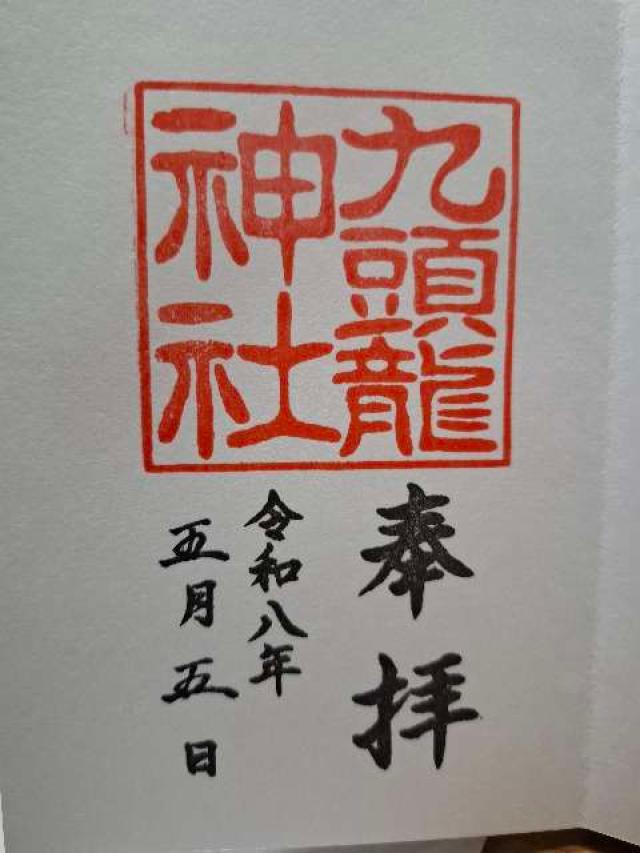 九頭龍
神社
奉拝
令和八年
五月五日